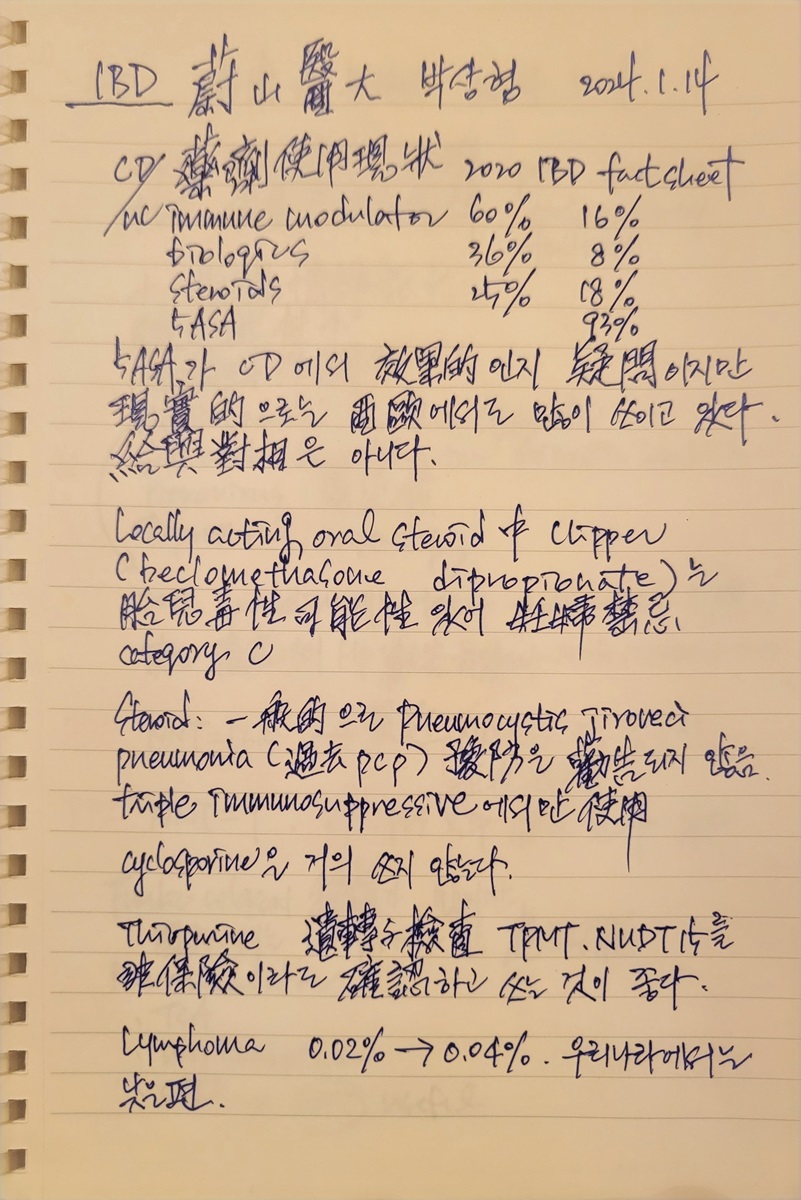 IBD 蔚山醫大 박상형 2024.1.14
CD/ 藥劑使用現狀 2020 IBD factsheet
/UC immune modulator 60% 16%
biologics 36% 8%
steroids 25% 18%
5ASA 93%
5ASA가 CD에서 效果的인지 疑問이지만
現實的으로는 西歐에서도 많이 쓰이고 있다.
給與對相은 아니다.
Locally acting oral steroid 中 Clipper
(beclomethasone dipropionate)는
胎兒毒性可能性 있어 妊婦禁忌.
category C
Steroid: 一般的으로 pneumocystis jiroveci
pneumonia (過去 pcp) 豫防은 勸告되지 않음.
triple immunosuppressive에서만 使用
cyclosporine은 거의 쓰지 않는다.
Thiopurine 遺轉子檢査 TPMT. NUDT15를
非保險이라도 確認하고 쓰는 것이 좋다.
Lymphoma 0.02% → 0.04%. 우리나라에서는
낮은편.